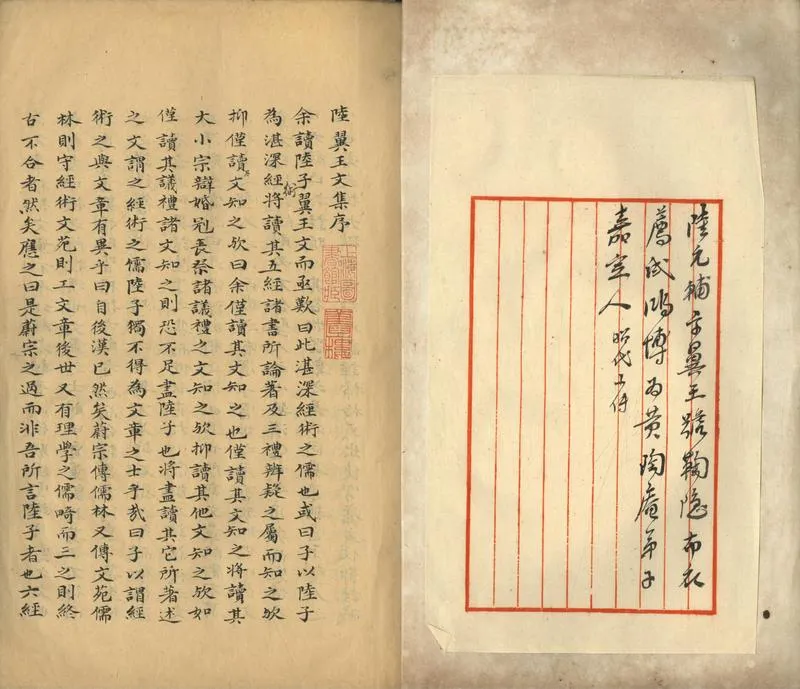 陸元輔字翼王號鞠隱布衣
薦試鴻博為黄陶庵弟子
嘉定人 昭代
陸翼王文集序
余讀陸子翼王文而亟歎曰此湛深經術之儒也或曰子以陸子
為湛深經術將讀其五經諸書所論著及三禮辨疑之屬而知之歟
抑僅讀其文知之歟曰余僅讀其文知之也僅讀其文知之將讀其
大小宗辯婚冠喪祭諸議禮之文知之歟抑讀其他文知之歟如
僅讀其議禮諸文知之則恐不足盡陸子也將盡讀其它所著述
之文謂之經術之儒陸子獨不得為文章之士乎哉曰子以謂經
術之與文章有異乎曰自後漢已然矣蔚宗傳儒林又傳文苑儒
林則守經術文苑則工文章後世又有理學之儒畸而三之則終
古不合者然矣應之曰是蔚宗之過而非吾所言陸子者也六經
上海圖書館藏